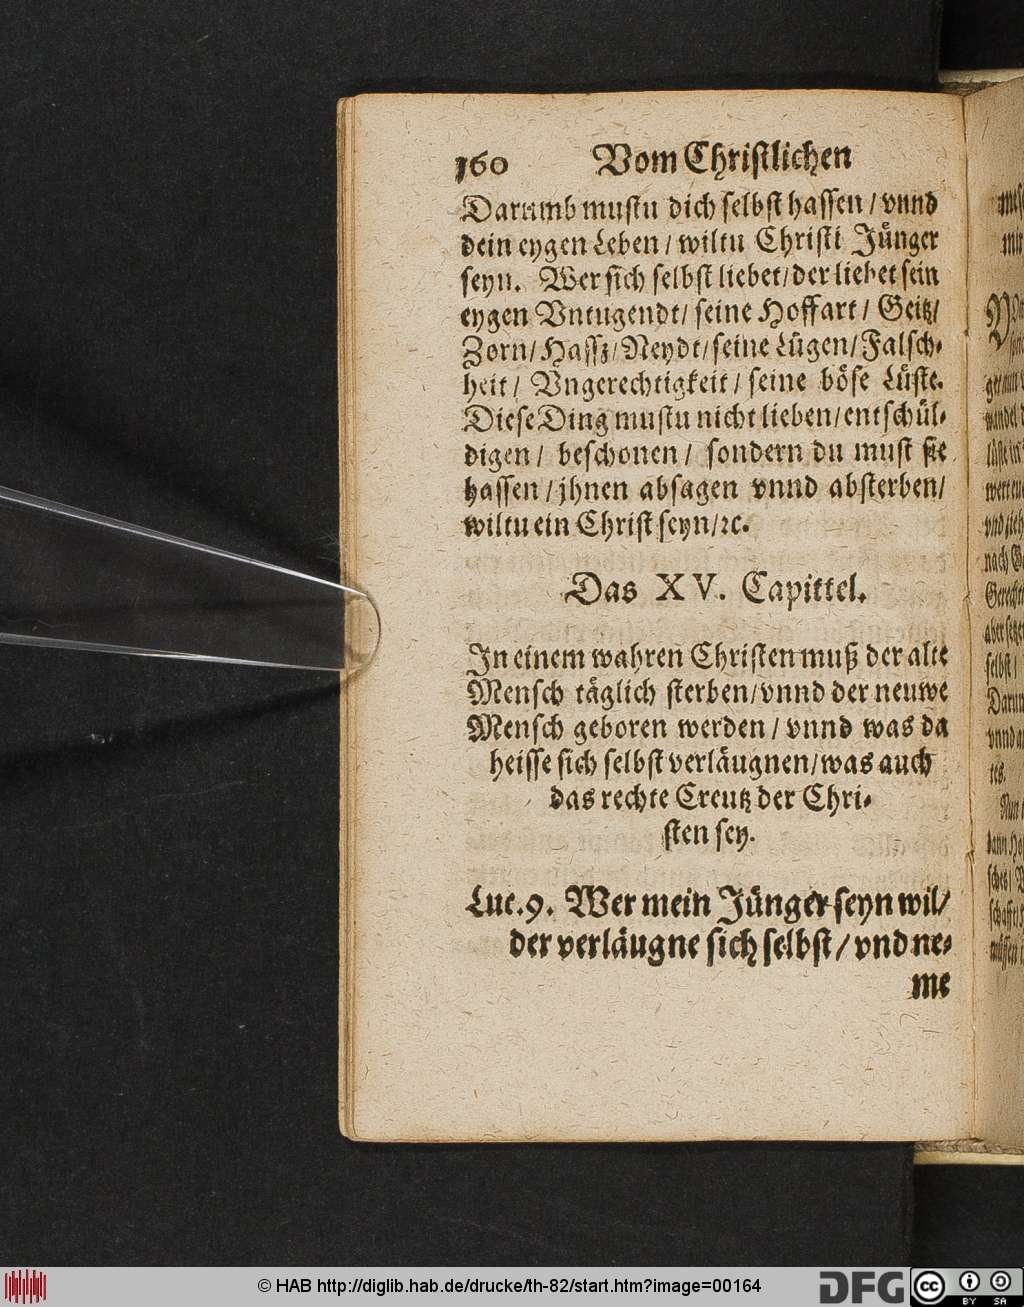 160 Vom Christlichen
Darumb mustu dich selbst hassen / vnnd
dein eygen Leben / wiltu Christi Jünger
seyn. Wer sich selbst liebet / der liebet sein
eygen Vntugendt / seine Hoffart / Geitz /
Zorn / Hassz / Neydt / seine Lügen / Falsch-
heit / Vngerechtigkeit / seine böse Lüste.
Diese Ding mustu nicht lieben / entschül-
digen / beschonen / sondern du must sie
hassen / jhnen absagen vnnd absterben /
wiltu ein Christ seyn / ꝛc.
Das XV. Capittel.
In einem wahren Christen muß der alte
Mensch täglich sterben / vnnd der neuwe
Mensch geboren werden / vnnd was da
heisse sich selbst verläugnen / was auch
das rechte Creutz der Chri-
sten sey.
Luc. 9. Wer mein Jünger seyn wil /
der verläugne sich selbst / vnd ne-
me
© HAB http://diglib.hab.de/drucke/th-82/start.htm?image=00164
DFG
cc BY SA